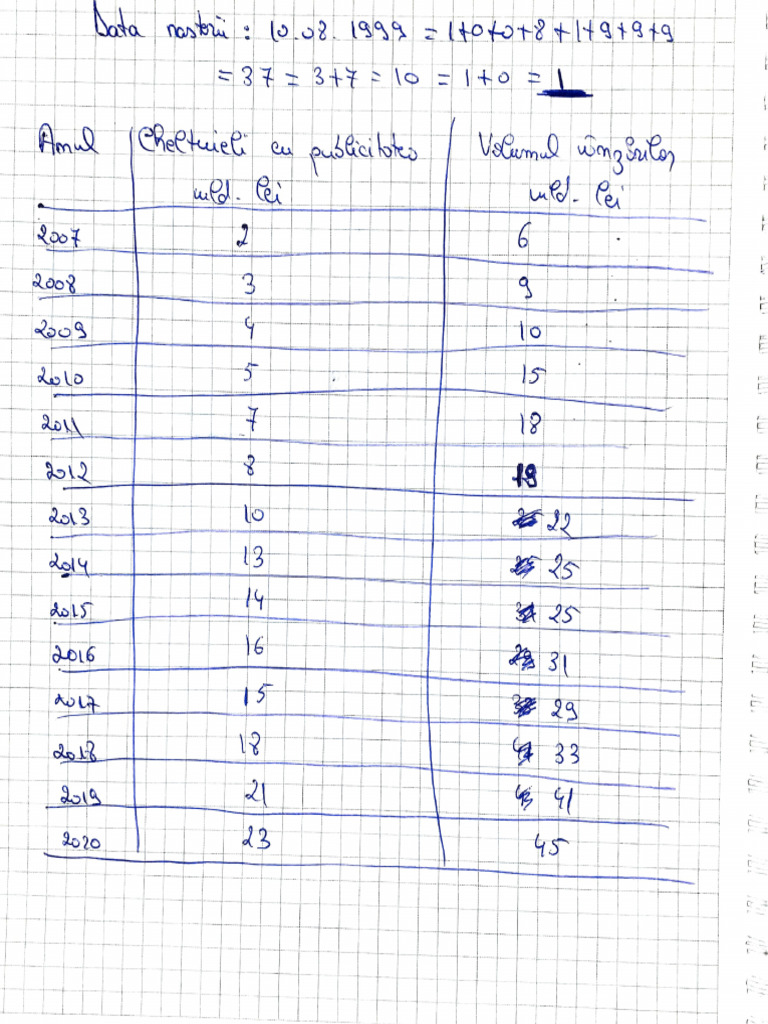 Data nasterii : 10.08.1999 = 1+0+0+8+1+9+9+9
= 37 = 3+7 = 10 = 1+0 = 1
Anul Cheltuieli cu publicitatea Volumul vînzărilor
mld. lei mld. lei
2007 2 6
2008 3 9
2009 4 10
2010 5 15
2011 7 18
2012 8
2013 10 22
2014 13 25
2015 14 25
2016 16 31
2017 15 29
2018 18 33
2019 21 41
2020 23 45